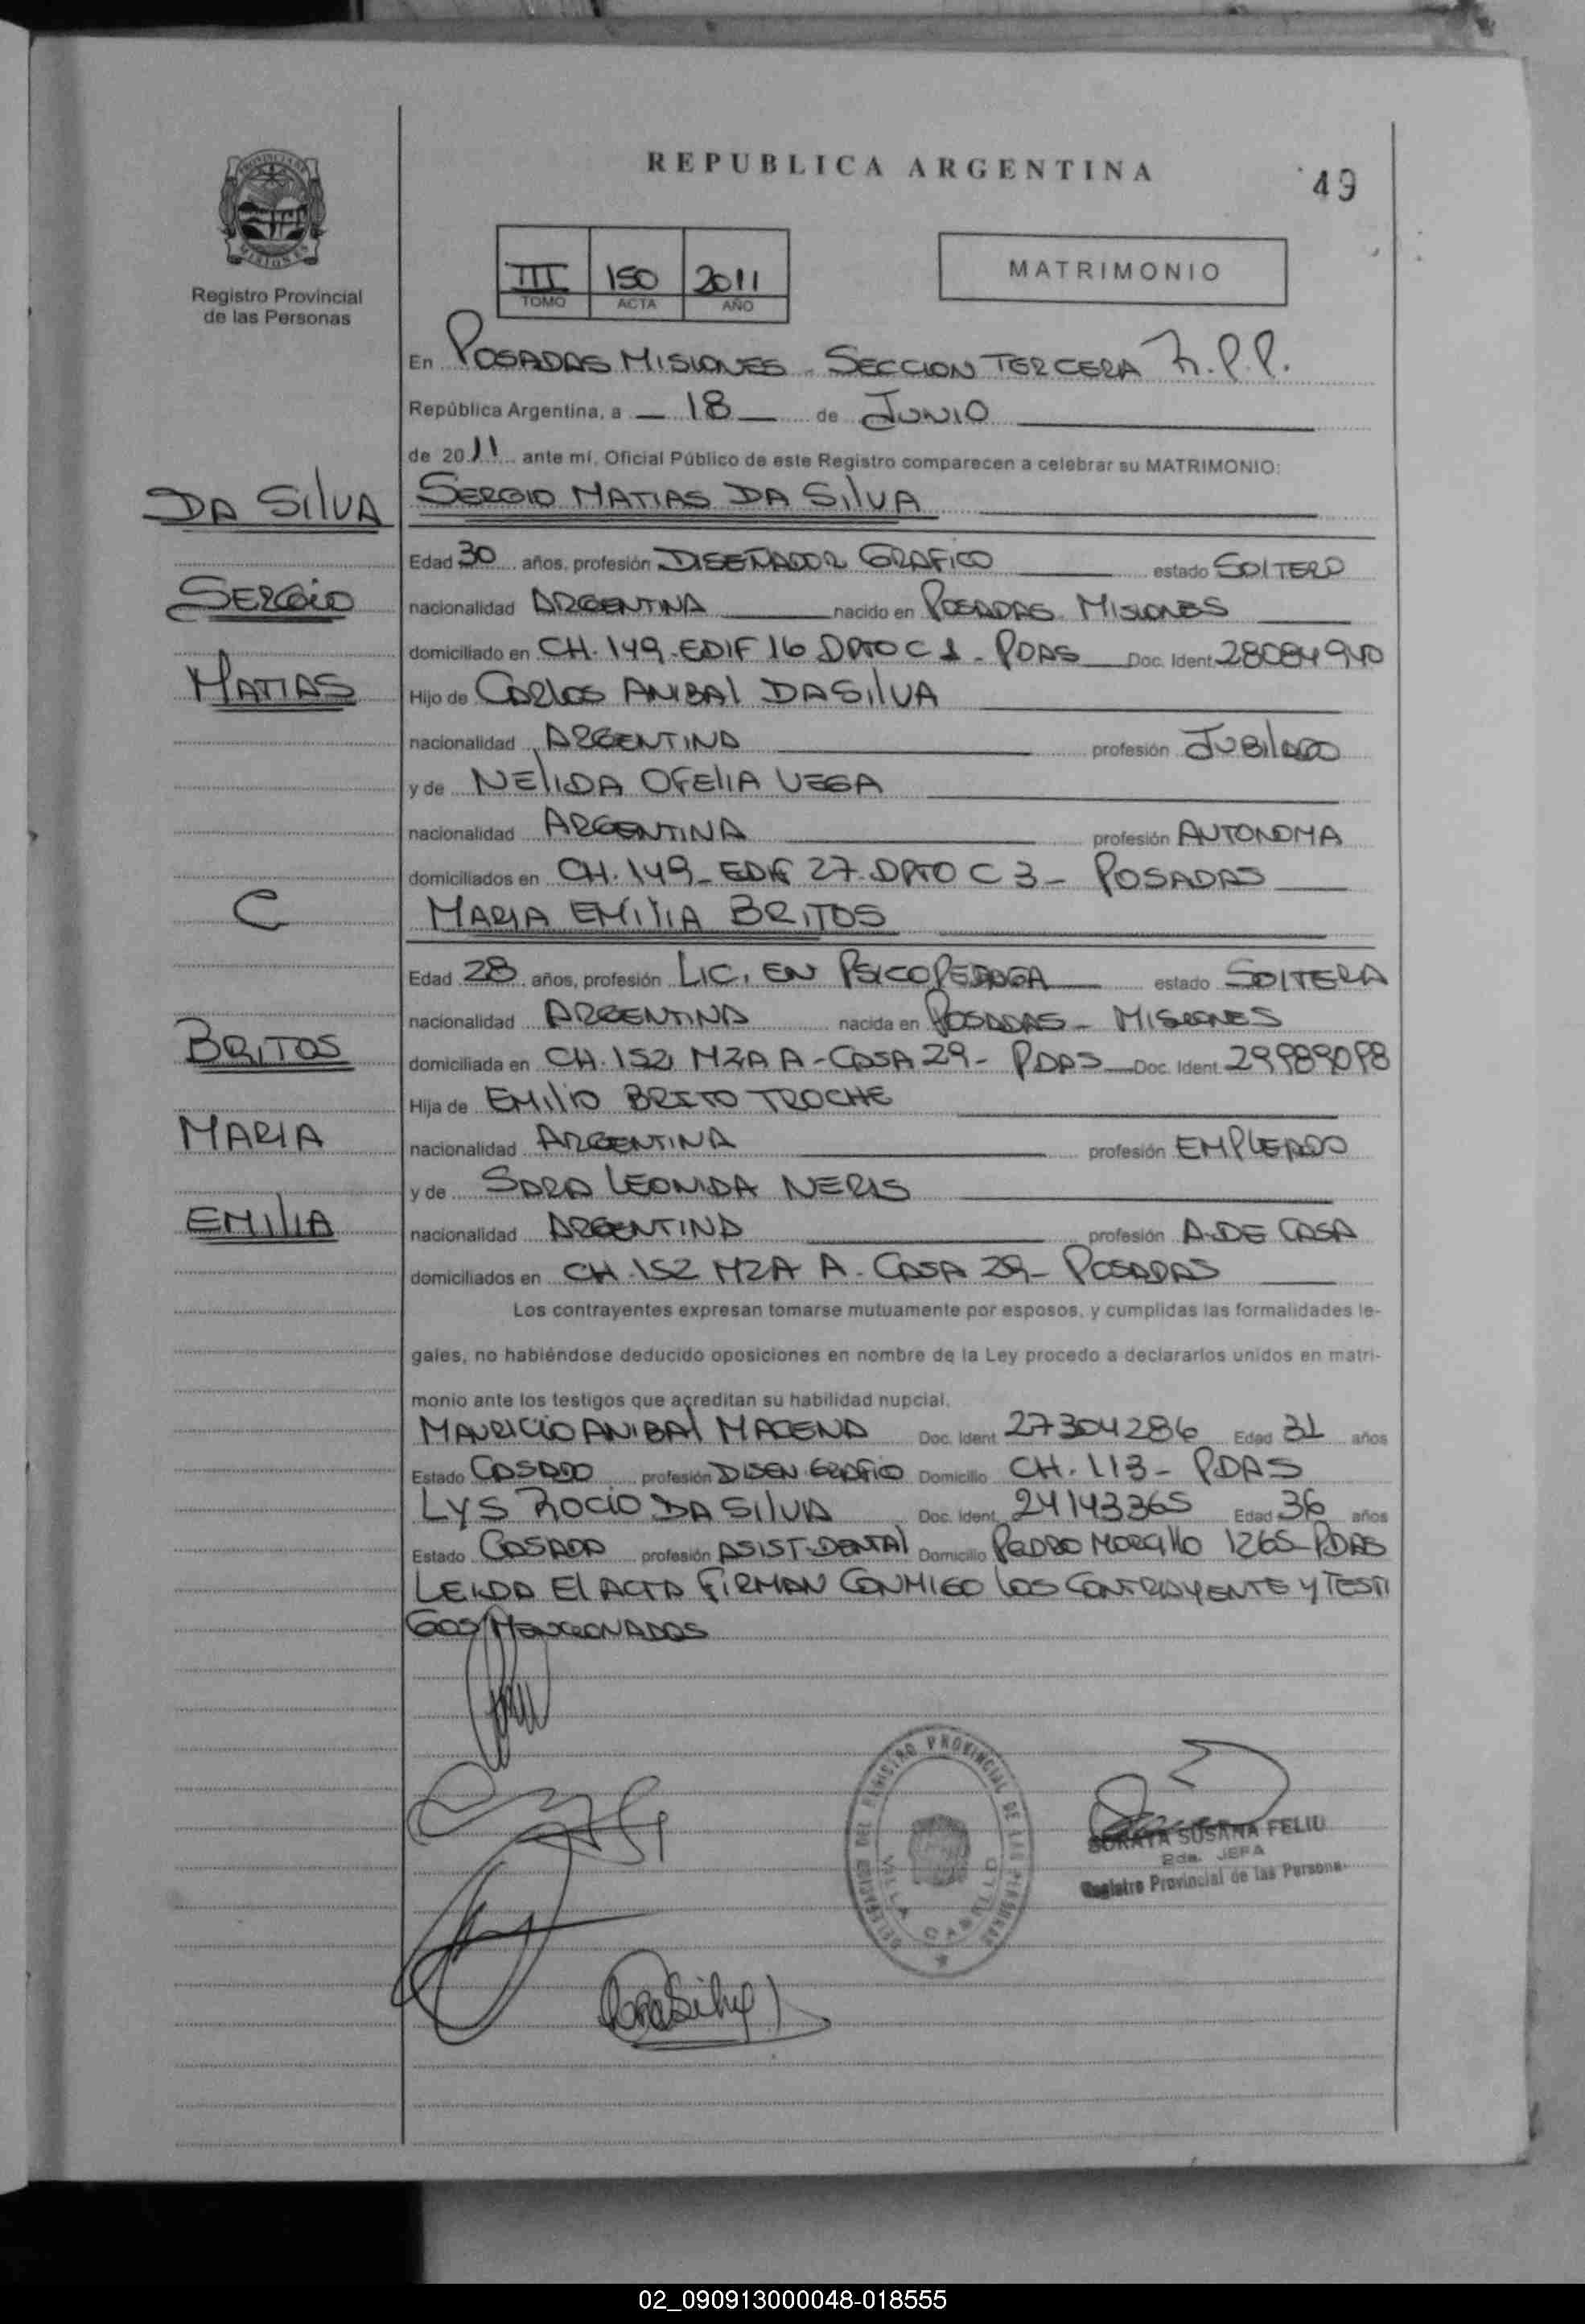 REPUBLICA ARGENTINA
49
PROVINCIA DE
MISIONES
Registro Provincial
de las Personas
III 150 2011
TOMO ACTA AÑO
MATRIMONIO
En POSADAS MISIONES - SECCION TERCERA R.P.P.
República Argentina, a 18 de JUNIO
de 2011 ante mí, Oficial Público de este Registro comparecen a celebrar su MATRIMONIO:
DA SILVA
SERGIO MATIAS DA SILVA
Edad 30 años, profesión DISEÑADOR GRAFICO estado SOLTERO
SERGIO
nacionalidad ARGENTINA nacido en POSADAS MISIONES
domiciliado en CH. 149 - EDIF 16 DPTO C 1 - PDAS Doc. Ident. 28084940
MATIAS
Hijo de CARLOS ANIBAL DA SILVA
nacionalidad ARGENTINA profesión JUBILADO
y de NELIDA OFELIA VEGA
nacionalidad ARGENTINA profesión AUTONOMA
domiciliados en CH. 149 - EDIF 27 - DPTO C 3 - POSADAS
C
MARIA EMILIA BRITOS
Edad 28 años, profesión LIC. EN PSICOPEDAGA estado SOLTERA
nacionalidad ARGENTINA nacida en POSADAS - MISIONES
BRITOS
domiciliada en CH. 152 MZA A - CASA 29 - PDAS Doc. Ident. 29989098
Hija de EMILIO BRITO TROCHE
MARIA
nacionalidad ARGENTINA profesión EMPLEADO
y de SARA LEONIDA NERIS
EMILIA
nacionalidad ARGENTINA profesión A. DE CASA
domiciliados en CH. 152 MZA A - CASA 29 - POSADAS
Los contrayentes expresan tomarse mutuamente por esposos, y cumplidas las formalidades le-
gales, no habiéndose deducido oposiciones en nombre de la Ley procedo a declararlos unidos en matri-
monio ante los testigos que acreditan su habilidad nupcial.
MAURICIO ANIBAL MACENA Doc. Ident. 27304286 Edad 31 años
Estado CASADO profesión DISEN GRAFICO Domicilio CH. 113 - PDAS
LYS ROCIO DA SILVA Doc. Ident. 24143365 Edad 36 años
Estado CASADA profesión ASIST-DENTAL Domicilio PEDRO MORCILLO 1265 - PDAS
LEIDA EL ACTA FIRMAN CONMIGO LOS CONTRAYENTE Y TESTI
GOS MENCIONADOS
DELEGACION DEL REGISTRO PROVINCIAL DE LAS PERSONAS
VILLA CABELLO
SORAYA SUSANA FELIU
2da. JEFA
Registro Provincial de las Persona
02_090913000048-018555